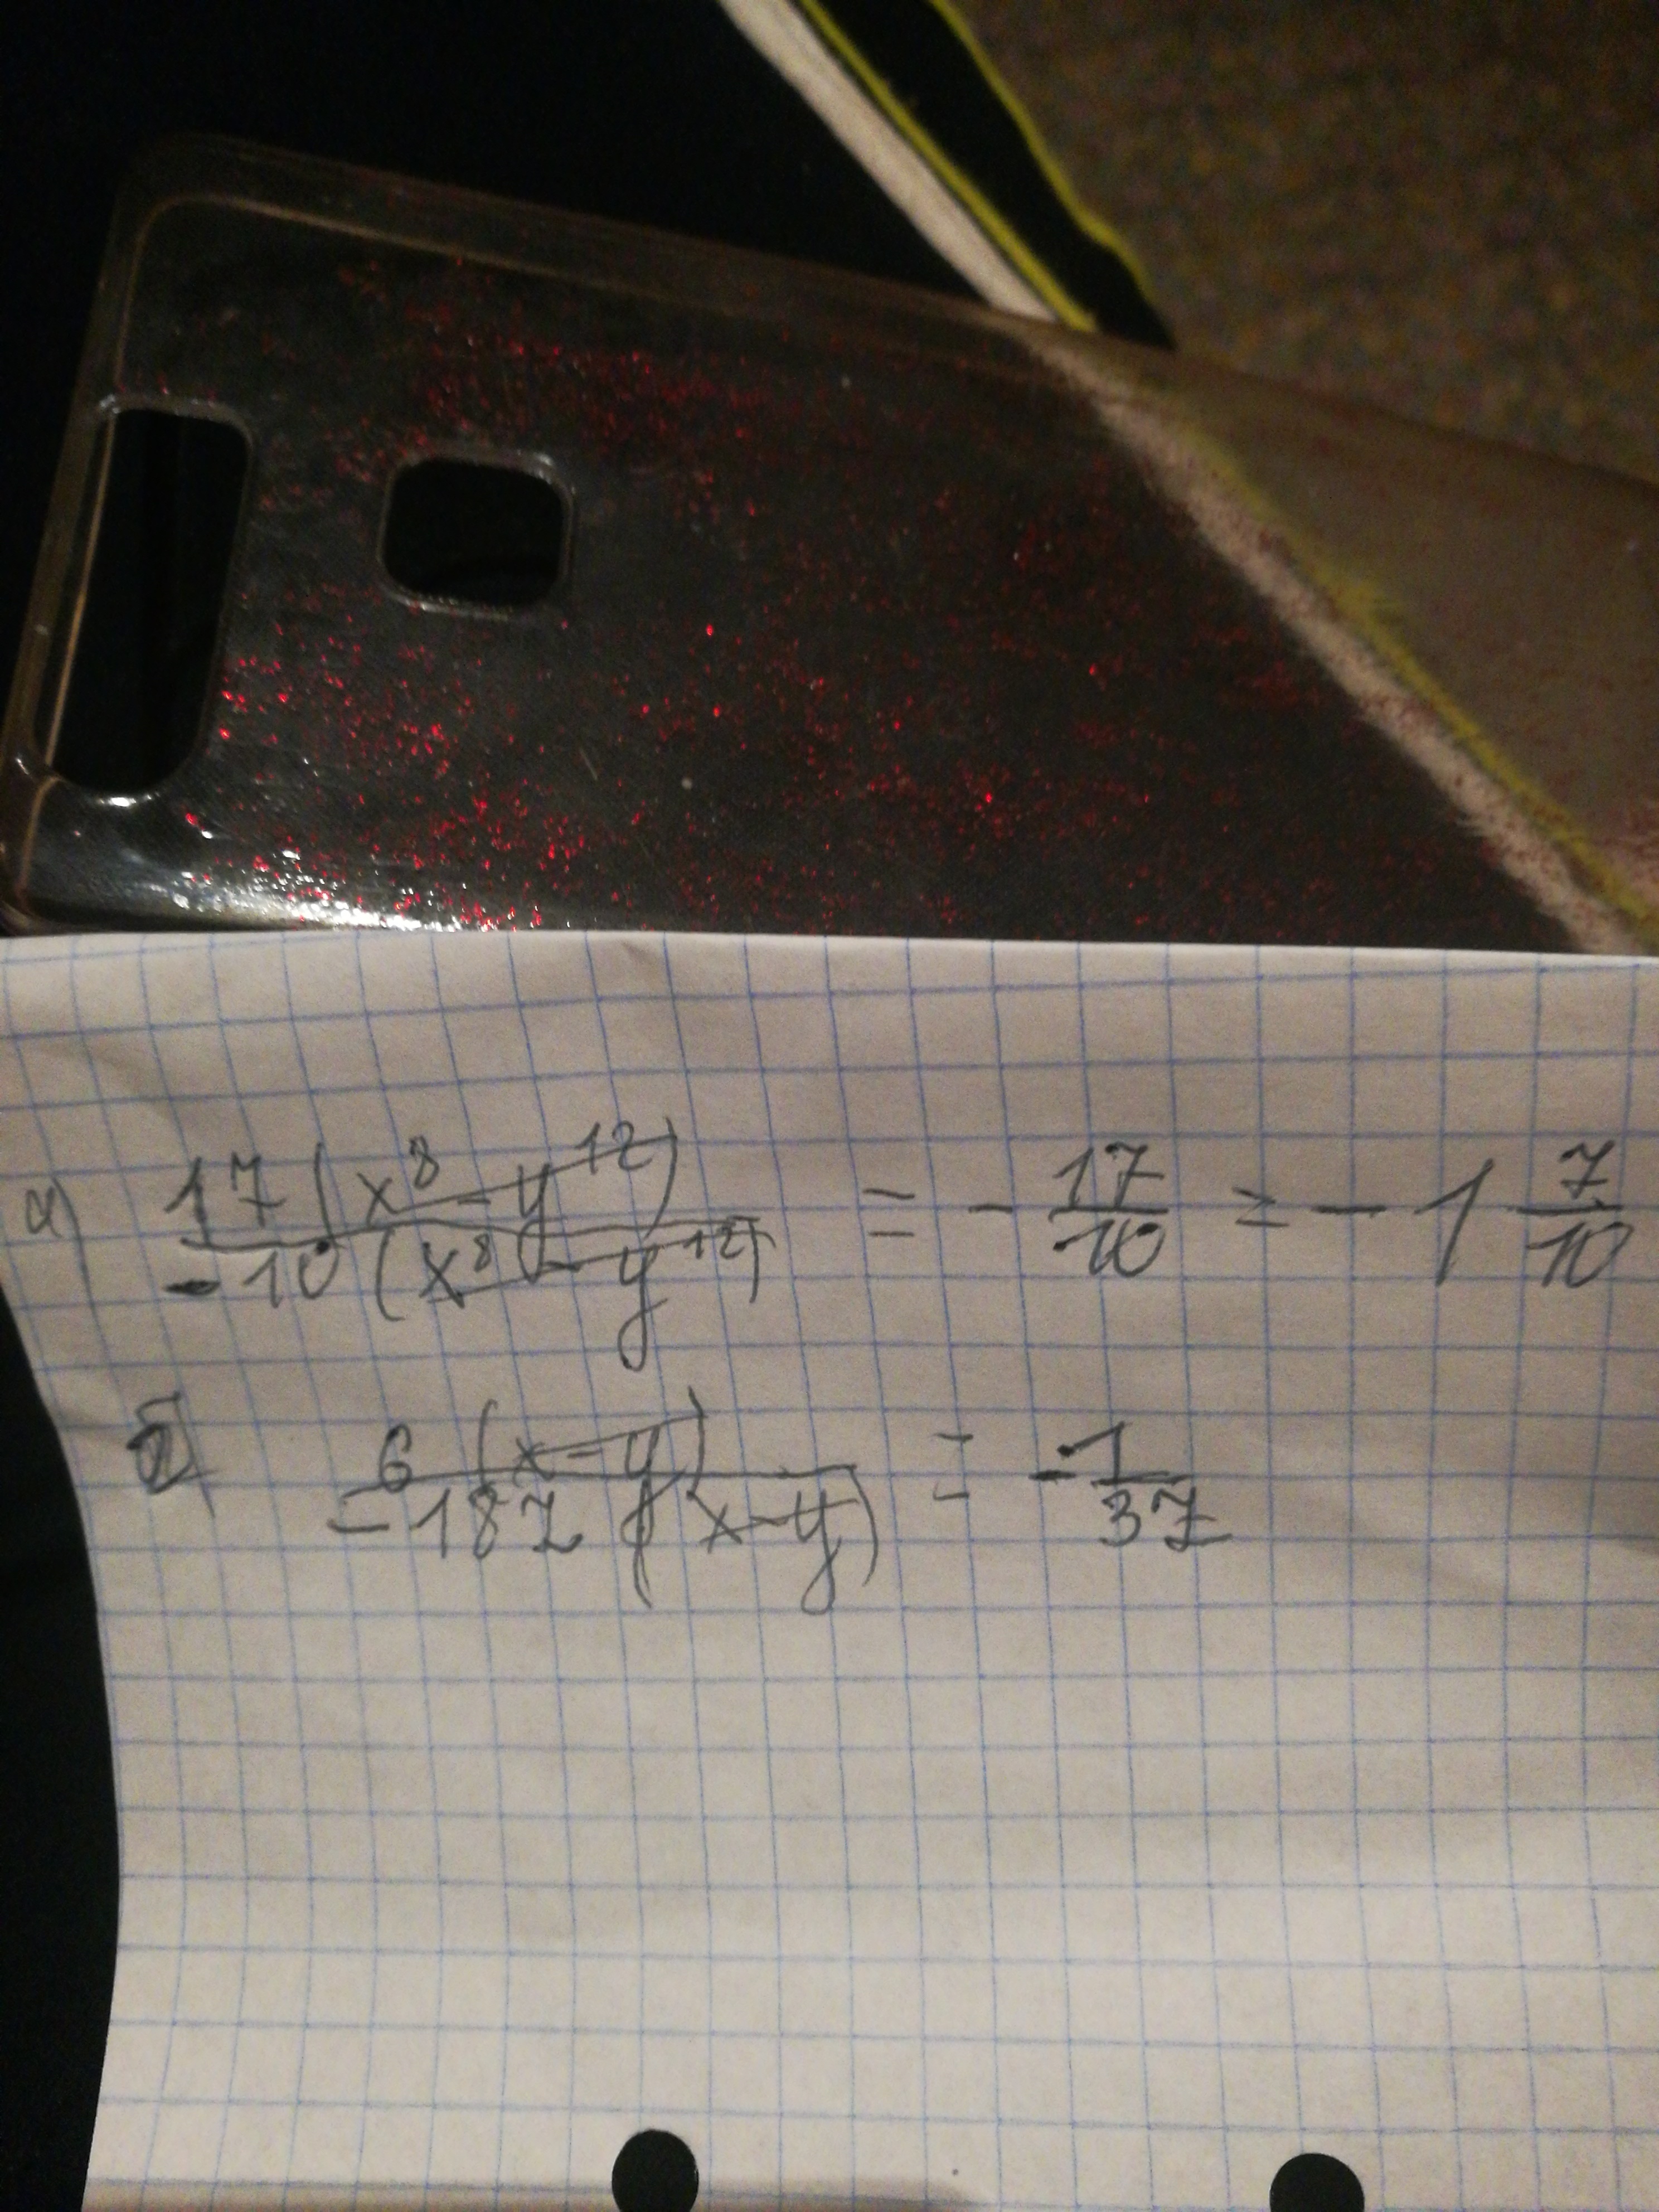 а) 17(x⁸-y¹²)/-10(x⁸-y¹²) = -17/10 = -1 7/10
б) 6(x-y)/-18z(x-y) = -1/3z